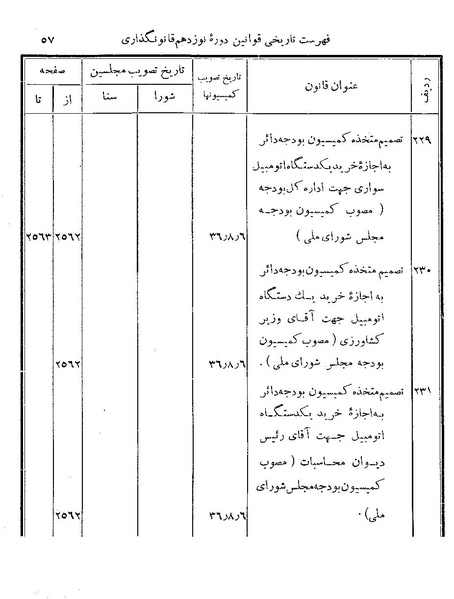 فهرست تاریخی قوانین دورهٔ نوزدهم قانونگذاری ۵۷
ردیف عنوان قانون تاریخ تصویب کمیسیونها تاریخ تصویب مجلسین صفحه
شورا سنا از تا
۲۲۹ تصمیم متخذه کمیسیون بودجه دائر
به اجازهٔ خرید یکدستگاه اتومبیل
سواری جهت اداره کل بودجه
( مصوب کمیسیون بودجه
مجلس شورای ملی ) ۳۶٫۸٫۶ ۲۵۶۲ ۲۵۶۳
۲۳۰ تصمیم متخذه کمیسیون بودجه دائر
به اجازهٔ خرید یك دستگاه
اتومبیل جهت آقای وزیر
کشاورزی ( مصوب کمیسیون
بودجه مجلس شورای ملی ) . ۳۶٫۸٫۶ ۲۵۶۲
۲۳۱ تصمیم متخذه کمیسیون بودجه دائر
به اجازهٔ خرید یکدستگاه
اتومبیل جهت آقای رئیس
دیوان محاسبات ( مصوب
کمیسیون بودجه مجلس شورای
ملی ) . ۳۶٫۸٫۶ ۲۵۶۲